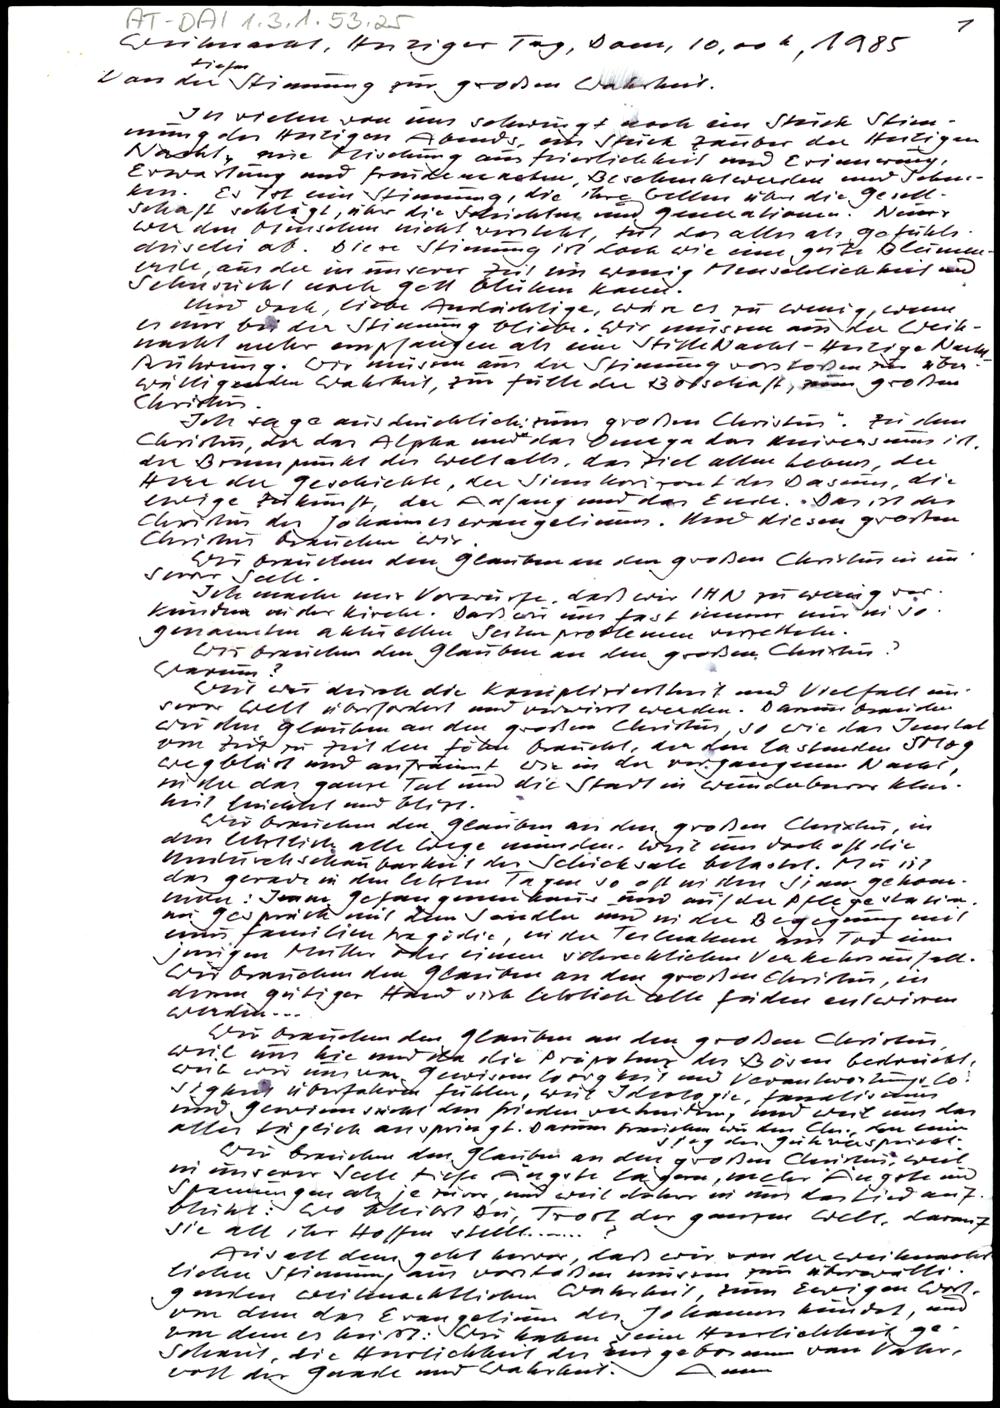 AT-DAI 1.3.1.53.25
1
Weihnacht, Heiliger Tag, Dom, 10,00 h, 1985
tiefen
Von der Stimmung zur großen Wahrheit.
In vielen von uns schwingt noch ein Stück Stim-
mung des Heiligen Abends, ein Stück Zauber der Heiligen
Nacht, eine Mischung aus Feierlichkeit und Erinnerung,
Erwartung und Freudemachen, Beschenktwerden und Schen-
ken. Es ist eine Stimmung, die ihre Wellen über die Gesell-
schaft schlägt, über die Schichten und Generationen. Nur
wer den Menschen nicht versteht, tut das alles als Gefühls-
duselei ab. Diese Stimmung ist doch wie eine gute Blumen-
erde, aus der in unserer Zeit ein wenig Menschlichkeit und
Sehnsucht nach Gott blühen kann.
Und doch, liebe Andächtige, wäre es zu wenig, wenn
es nur bei der Stimmung bliebe. Wir müssen aus der Weih-
nacht mehr empfangen als eine Stille Nacht-Heilige Nacht-
Rührung. Wir müssen aus der Stimmung vorstoßen zur über-
wältigenden Wahrheit, zur Fülle der Botschaft, zum großen
Christus.
Ich sage ausdrücklich: "zum großen Christus". Zu dem
Christus, der das Alpha und das Omega des Universums ist,
der Brennpunkt des Weltalls, das Ziel allen Lebens, der
Herr der Geschichte, der Sinnhorizont des Daseins, die
ewige Zukunft, der Anfang und das Ende. Das ist der
Christus des Johannesevangeliums. Und diesen großen
Christus brauchen wir.
Wir brauchen den Glauben an den großen Christus in un-
serer Seele.
Ich mache mir Vorwürfe, daß wir IHN zu wenig ver-
künden in der Kirche. Daß wir uns fast immer nur in so-
genannten aktuellen Seitenproblemen verzetteln.
Wir brauchen den Glauben an den großen Christus?
Warum?
Weil wir durch die Kompliziertheit und Vielfalt un-
serer Welt überfordert und verwirrt werden. Darum brauchen
wir den Glauben an den großen Christus, so wie das Inntal
von Zeit zu Zeit den Föhn braucht, der den lastenden Smog
wegbläst und aufräumt wie in der vergangenen Nacht,
in der das ganze Tal und die Stadt in wunderbarer Klar-
heit leuchtet und blitzt.
Wir brauchen den Glauben an den großen Christus, in
den letztlich alle Wege münden. Weil uns doch oft die
Undurchschaubarkeit der Schicksale belastet. Mir ist
das gerade in den letzten Tagen so oft in den Sinn gekom-
men: Im Gefangenenhaus und auf der Pflegestation,
im Gespräch mit dem Sandler und in der Begegnung mit
einer Familientragödie, in der Teilnahme am Tod einer
jungen Mutter oder einem schrecklichen Verkehrsunfall.
Wir brauchen den Glauben an den großen Christus, in
dessen gütiger Hand sich letztlich alle Fäden entwirren
werden...
Wir brauchen den Glauben an den großen Christus,
weil uns hie und da die Präpotenz des Bösen bedrückt,
weil wir uns von Gewissenlosigkeit und Verantwortungslo-
sigkeit überfahren fühlen, weil Ideologie, Fanatismus
und Gewinnsucht den Frieden verhindern, und weil uns das
alles täglich anspringt. Darum brauchen wir den Chr., der einen
Sieg des Guten verspricht.
Wir brauchen den Glauben an den großen Christus, weil
in unserer Seele tiefe Ängste lagern, mehr Ängste und
Spannungen als je zuvor, und weil daher in uns das Lied auf-
blüht: Wo bleibst Du, Trost der ganzen Welt, darauf
sie all ihr Hoffen stellt......?
Aus all dem geht hervor, daß wir von der weihnacht-
lichen Stimmung aus vorstoßen müssen zur überwälti-
genden weihnachtlichen Wahrheit, zum Ewigen Wort,
von dem das Evangelium des Johannes kündet, und
von dem es heißt: Wir haben seine Herrlichkeit ge-
schaut, die Herrlichkeit des Eingeborenen vom Vater,
voll der Gnade und Wahrheit. Amen